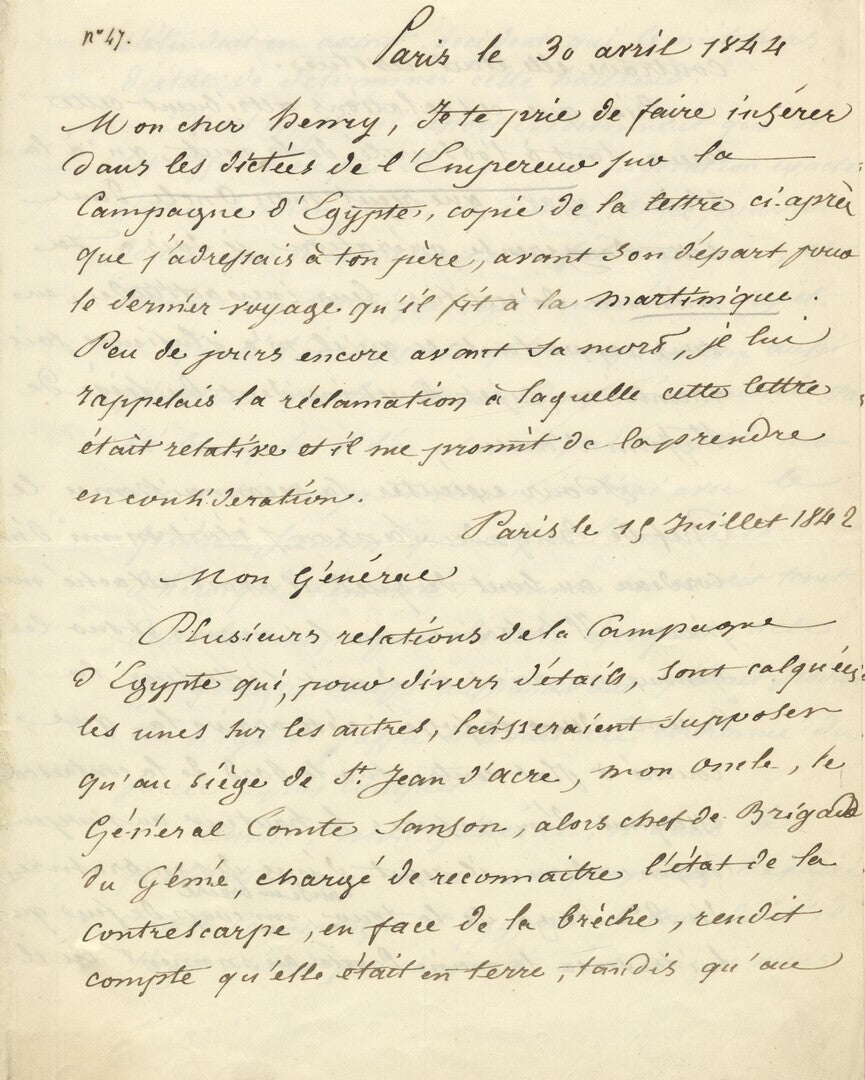 nº 47.
Paris le 30 avril 1844
Mon cher henry, Je te prie de faire insérer
dans les dictées de l'Empereur sur la
Campagne d'Egypte, copie de la lettre ci-après
que j'adressais à ton père, avant son départ pour
le dernier voyage qu'il fit à la martinique.
Peu de jours encore avant sa mort, je lui
rappelais la réclamation à laquelle cette lettre
était relative et il me promit de la prendre
en considération.
Paris le 15 Juillet 1842
Mon Général
Plusieurs relations de la Campagne
d'Egypte qui, pour divers détails, sont calquées
les unes sur les autres, laisseraient supposer
qu'au siège de St. Jean d'acre, mon oncle, le
Général Comte Sanson, alors chef de Brigade
du Génie, chargé de reconnaitre l'état de la
contrescarpe, en face de la brèche, rendit
compte qu'elle était en terre, tandis qu'au